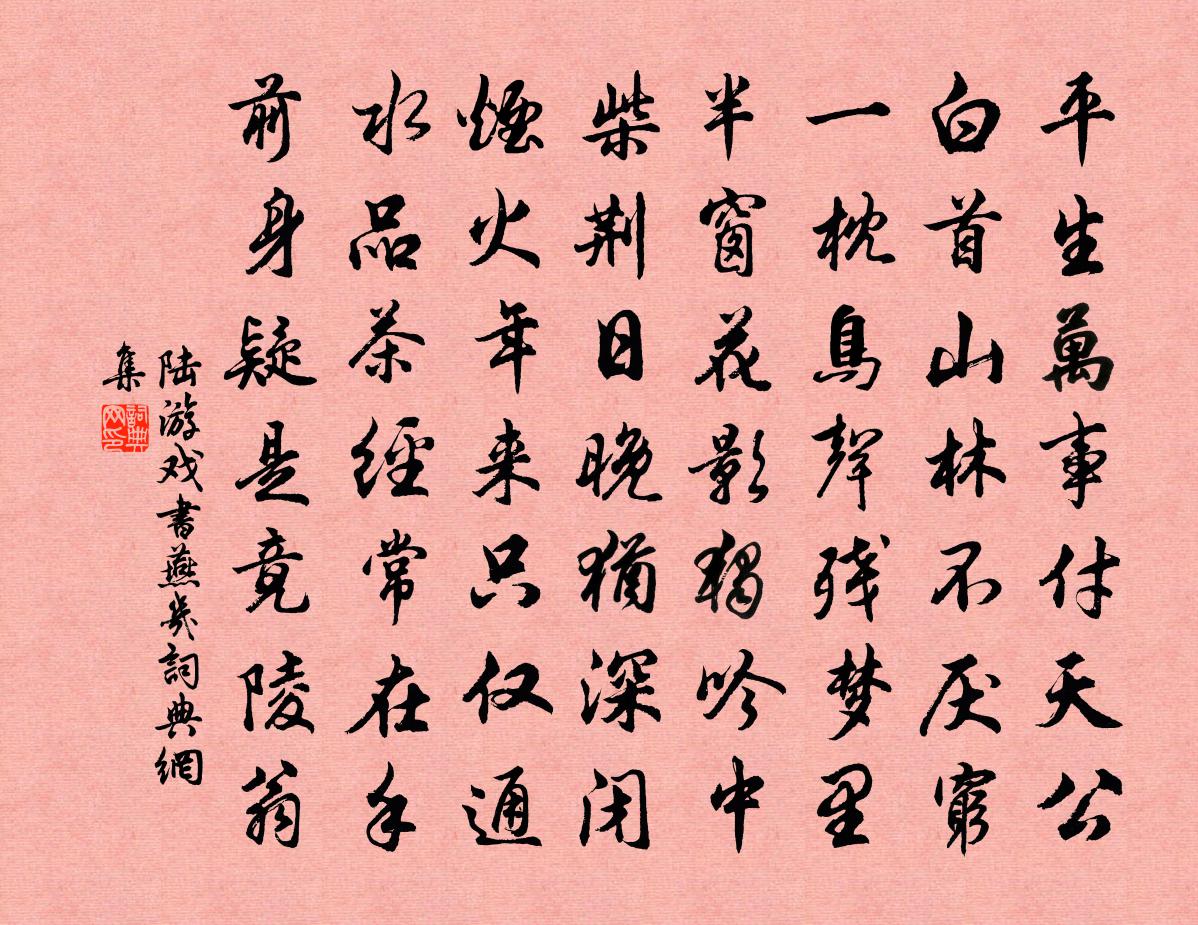 平生萬事付天公
白首山林不厌窮
一枕鳥聲残梦里
半窗花影獨吟中
柴荆日晚猶深闭
煙火年来只仅通
水品茶經常在手
前身疑是竟陵翁
陆游戏書燕幾詞典網
集
詞典网印